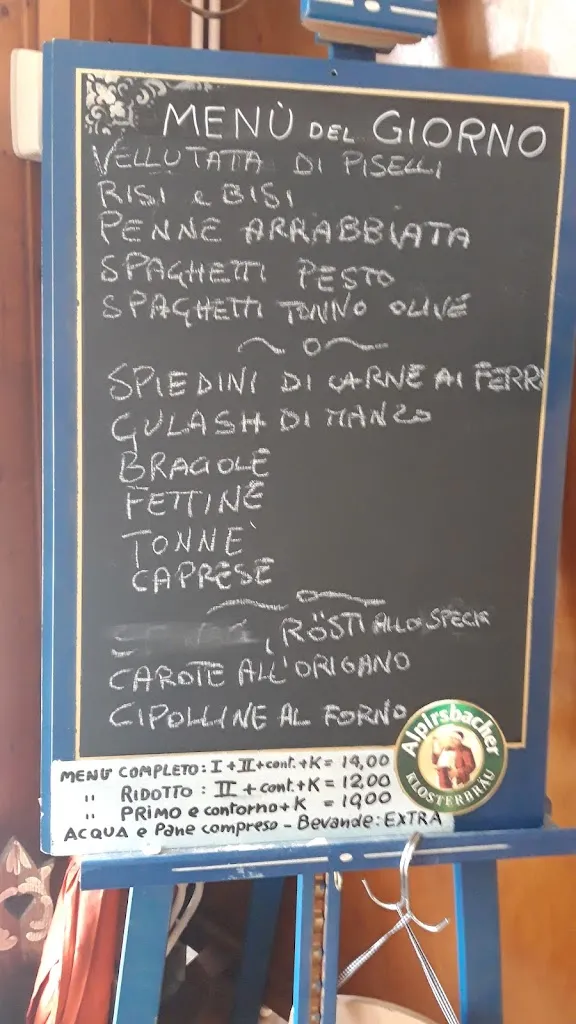 MENÙ DEL GIORNO
VELLUTATA DI PISELLI
RISI e BISI
PENNE ARRABBIATA
SPAGHETTI PESTO
SPAGHETTI TONNO OLIVE
SPIEDINI DI CARNE AI FERRI
GULASH DI MANZO
BRAGOLE
FETTINE
TONNE'
CAPRESE
, RÖSTI ALLO SPECK
CAROTE ALL'ORIGANO
CIPOLLINE AL FORNO
MENÙ COMPLETO: I + II + cont. + K = 14,00
" RIDOTTO: II + cont. + K = 12,00
" PRIMO e contorno + K = 10,00
ACQUA e Pane compreso - Bevande: EXTRA
Alpirsbacher
KLOSTERBRÄU